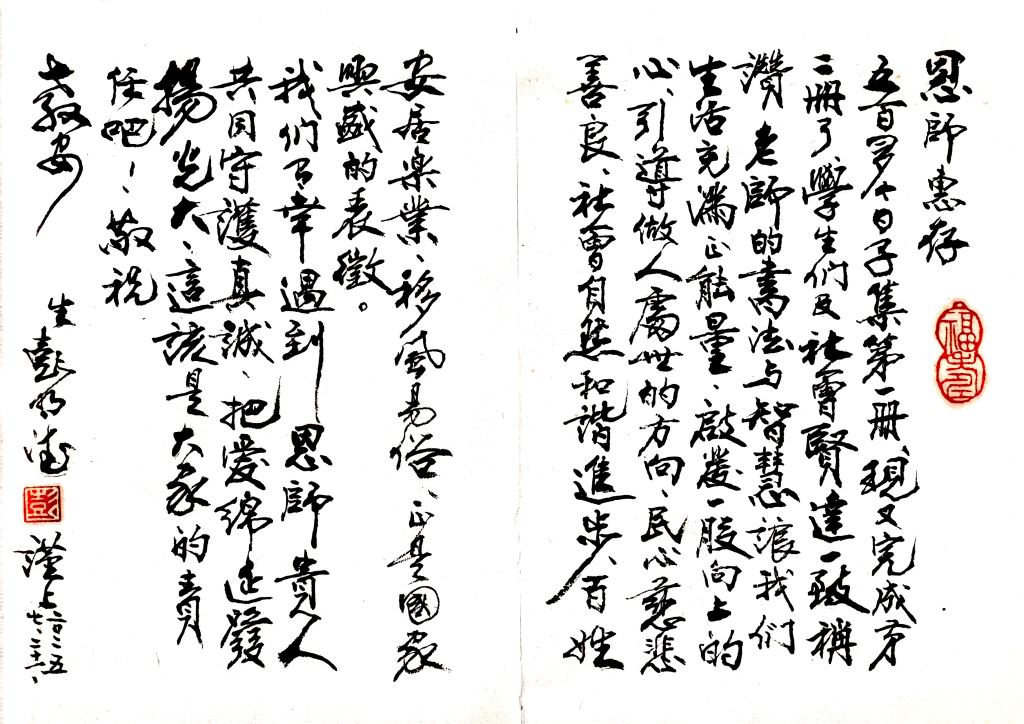 恩師惠存
五百多个日子集第一册、現又完成第
二册了、學生们及社會賢達一致稱
讚 老師的書法与智慧讓我们
生活充滿正能量、啟發一股向上的
心、引導做人處世的方向、民心慈悲
善良、社會自然和諧進步、百姓
安居楽業、移風易俗、正是國家
興盛的表徵。
我们有幸遇到 恩師貴人
共同守護真誠、把愛綿延發
揚光大、這該是大家的責
任吧！、敬祝
教安
生 彭
彭
謹上
二〇二五
七、二十六、